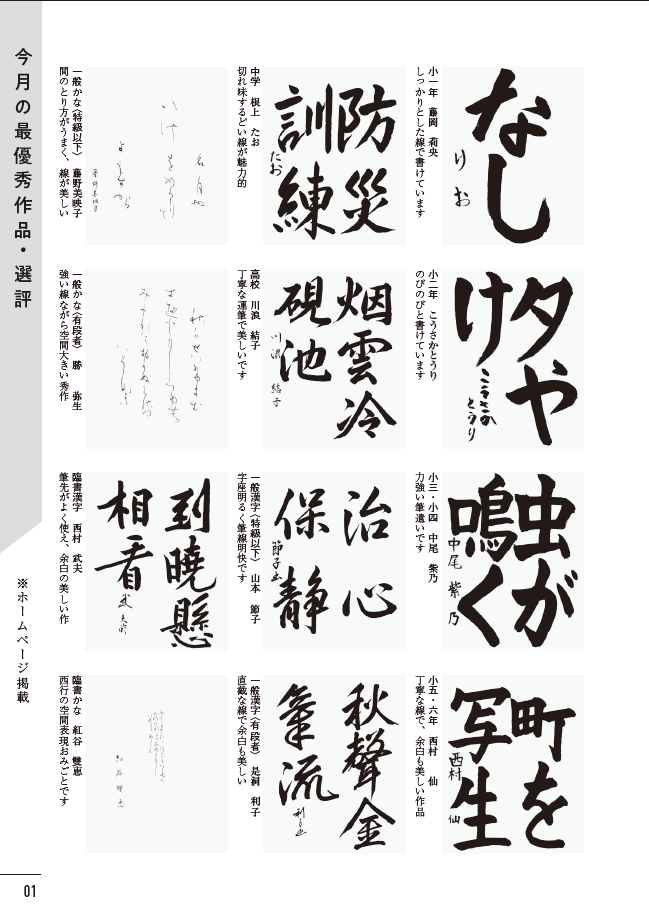 今月の最優秀作品・選評
※ホームページ掲載
小一年　藤岡　莉央
しっかりとした線で書けています
なし
りお
小二年　こうさかとうり
のびのびと書けています
夕や
け
こうさか
とうり
小三・小四　中尾　紫乃
力強い筆遣いです
虫が
鳴く
中尾　紫乃
小五・六年　西村　仙
丁寧な線で、余白も美しい作品
町を
写生
西村　仙
中学　根上　たお
切れ味するどい線が魅力的
防災
訓練
たお
高校　川浪　結子
丁寧な運筆で美しいです
烟雲冷
硯池
川浪　結子
一般漢字〈特級以下〉　山本　節子
字座明るく筆線明快です
治心
保静
節子書
一般漢字〈有段者〉　是洞　利子
直截な線で余白も美しい
秋聲金
氣流
一般かな〈特級以下〉　藤野美映子
間のとり方がうまく、線が美しい
一般かな〈有段者〉　勝　弥生
強い線ながら空間大きい秀作
臨書漢字　西村　武夫
筆先がよく使え、余白の美しい作
到曉懸
相看
臨書かな　紅谷　雙恵
西行の空間表現おみごとです
01